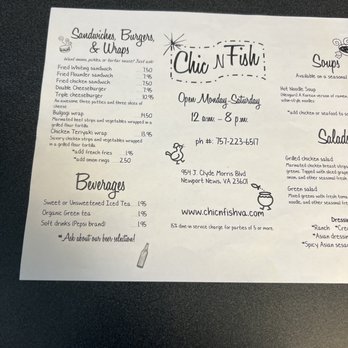 Sandwiches, Burgers,
& Wraps
Want onions, pickles, or tartar sauce? Just ask!
Fried Whiting sandwich 7.50
Fried Flounder sandwich 7.95
Fried chicken sandwich 7.50
Double Cheeseburger 7.95
Triple cheeseburger 10.95
An awesome three patties and three slices of
cheese
Bulgogi wrap 14.50
Marinated beef strips and vegetables wrapped in
a grilled flour tortilla
Chicken Teriyaki wrap 13.95
Savory chicken strips and vegetables wrapped
in a grilled flour tortilla
*add french fries 1.95
*add onion rings 2.50
Beverages
Sweet or Unsweetened Iced Tea 1.95
Organic Green tea 1.95
Soft drinks (Pepsi brand) 1.95
*Ask about our beer selection!
Chic N Fish
Open Monday-Saturday
12 a.m. - 8 p.m.
ph #: 757-223-6517
954 J. Clyde Morris Blvd
Newport News, VA 23601
www.chicnfishva.com
18% dine in service charge for parties of 5 or more
Soups
Available on a seasonal
Hot Noodle Soup
Chicago's A Korean version of ramen
udon-style noodles
Salads
Grilled chicken salad
Marinated chicken breast
greens. Topped with diced
onion, and other seasonal fresh
Green salad
Mixed greens with fresh
tomato, and other seasonal
Dress
*Ranch *Cre
*Asian Dressing
*Spicy Asian sesa